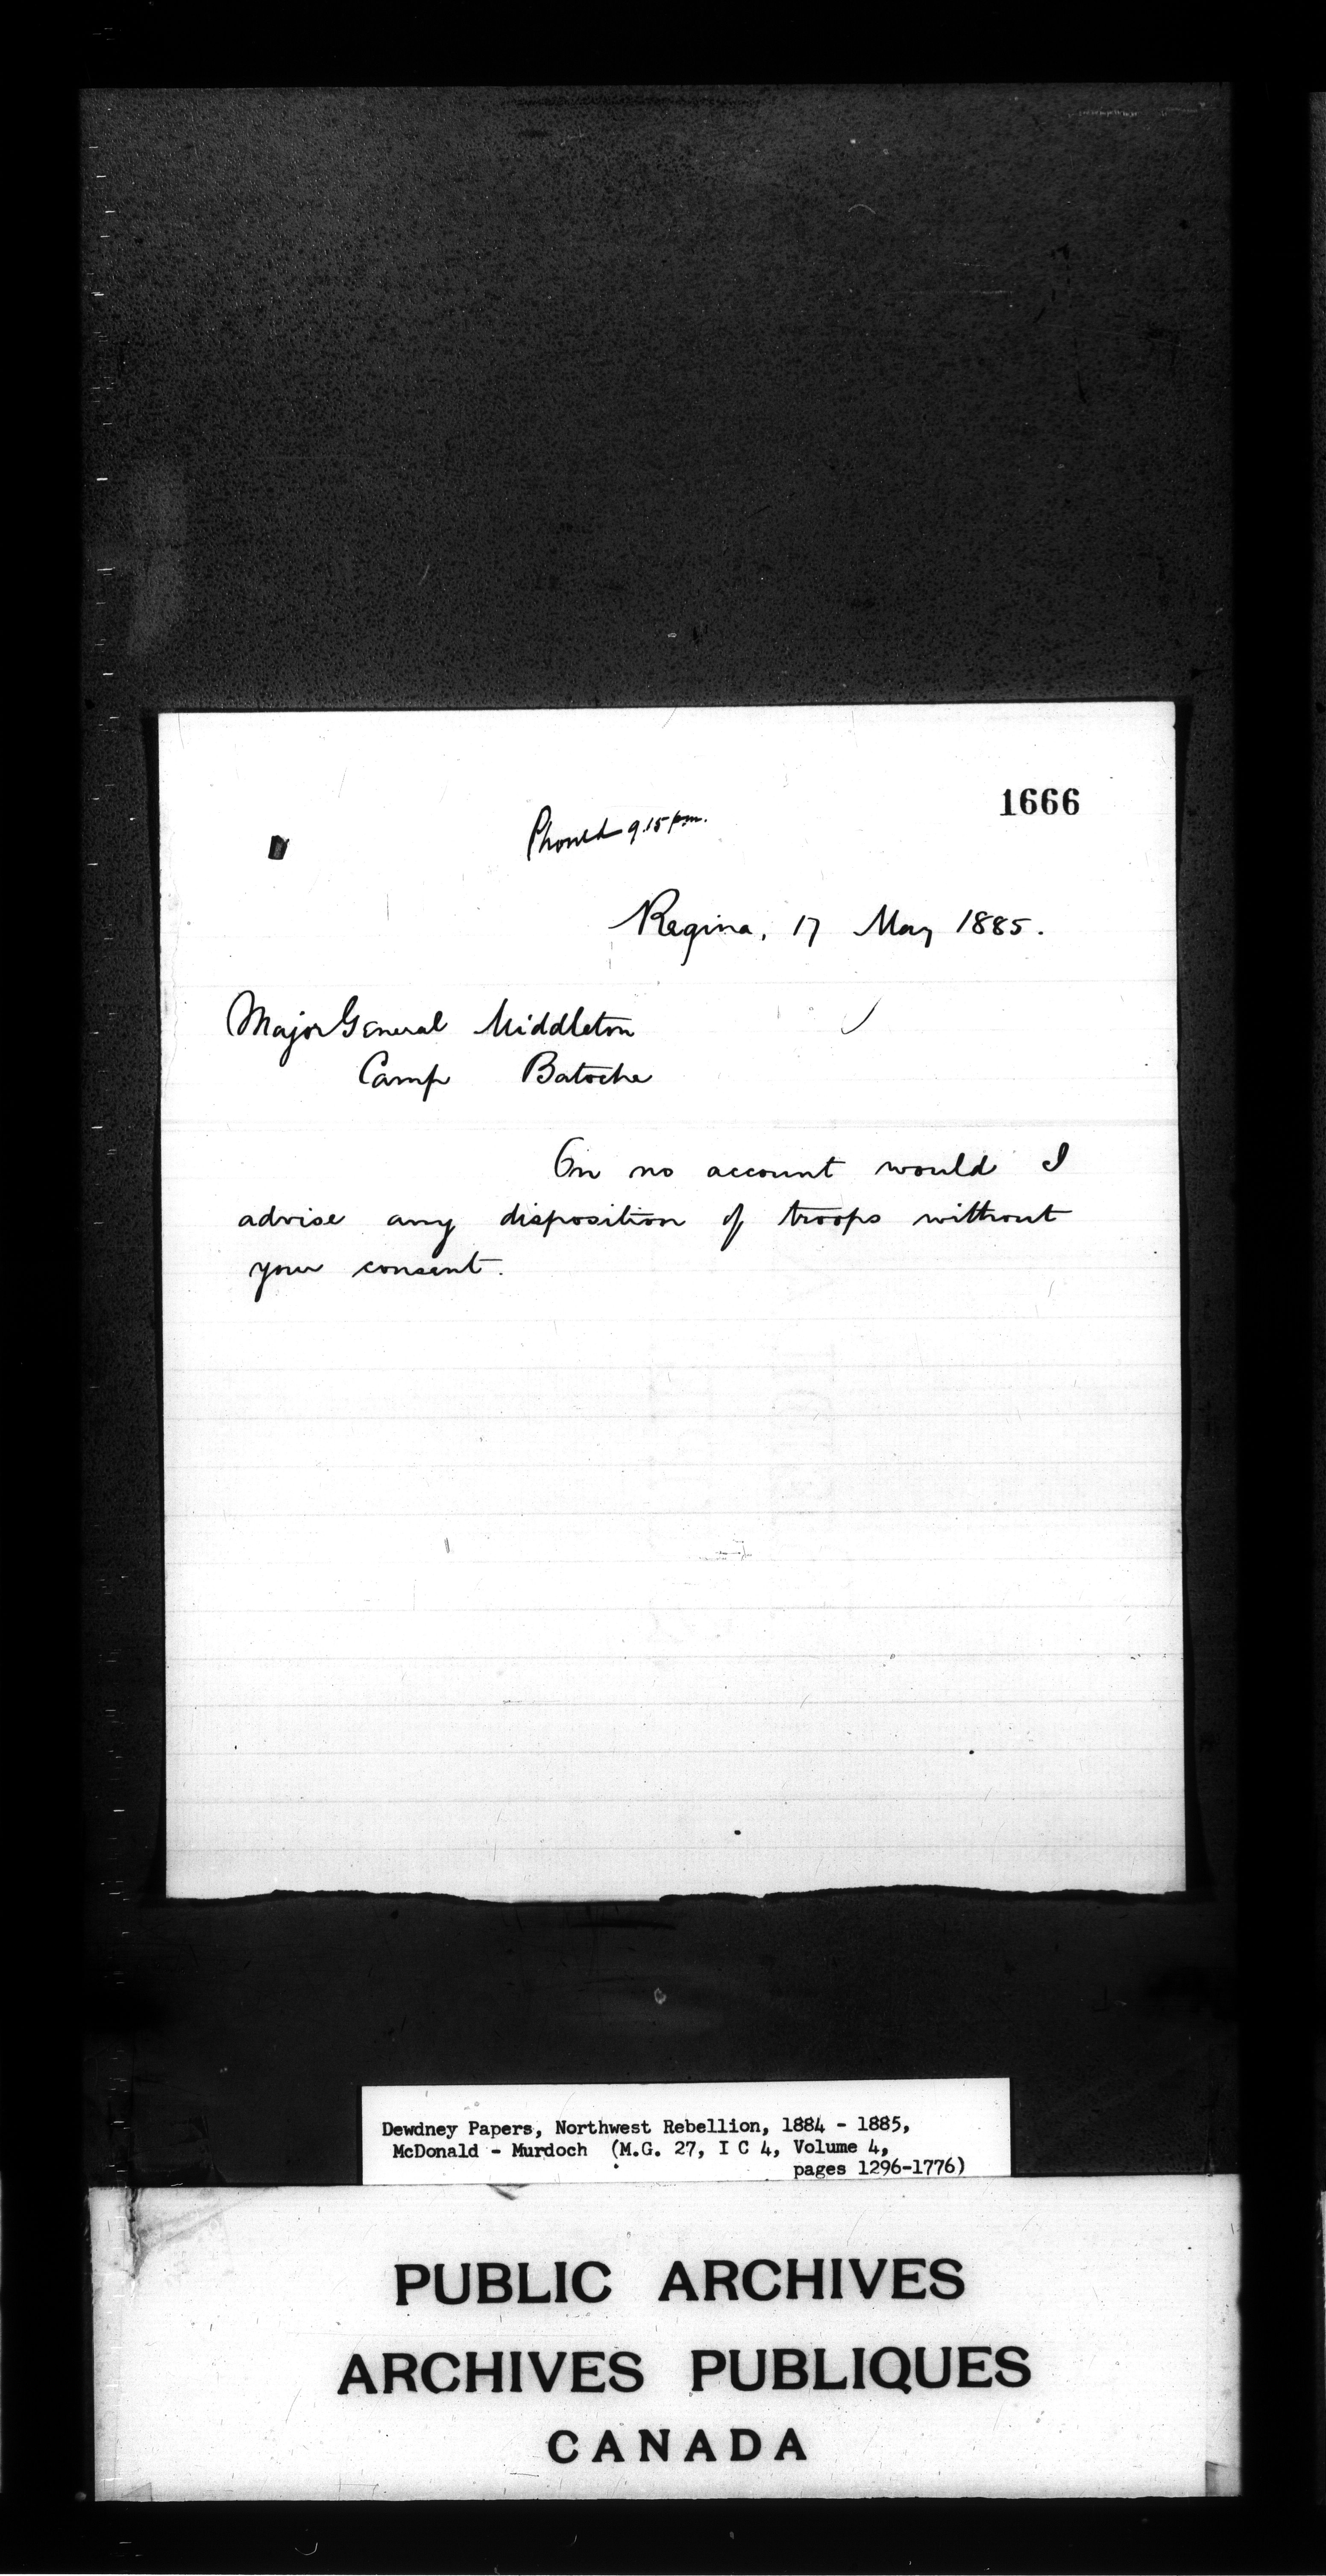 1666
Phoned 9.15 pm.
Regina, 17 May 1885.
Major General Middleton
Camp Batoche
On no account would I
advise any disposition of troops without
your consent.
Dewdney Papers, Northwest Rebellion, 1884 - 1885,
McDonald - Murdoch (M.G. 27, I C 4, Volume 4,
pages 1296-1776)
PUBLIC ARCHIVES
ARCHIVES PUBLIQUES
CANADA